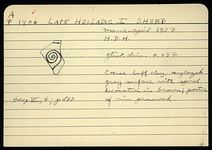 A
P 1406 LATE HELLADIC I SHERD
March-April 1937
H.D.H.
Coarse buff clay, unglazed
gray surface with spiral
decoration in brown; portion
of rim preserved.